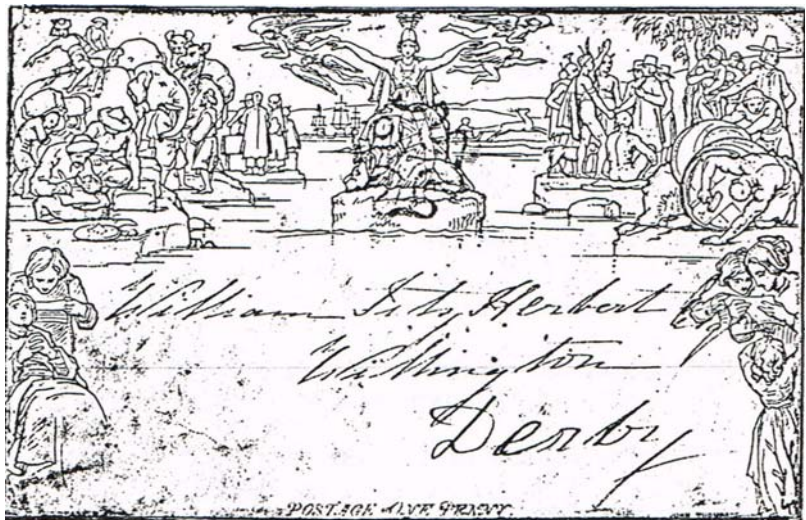 William Fitz Herbert Esq
Willington
Derby
POSTAGE ONE PENNY.